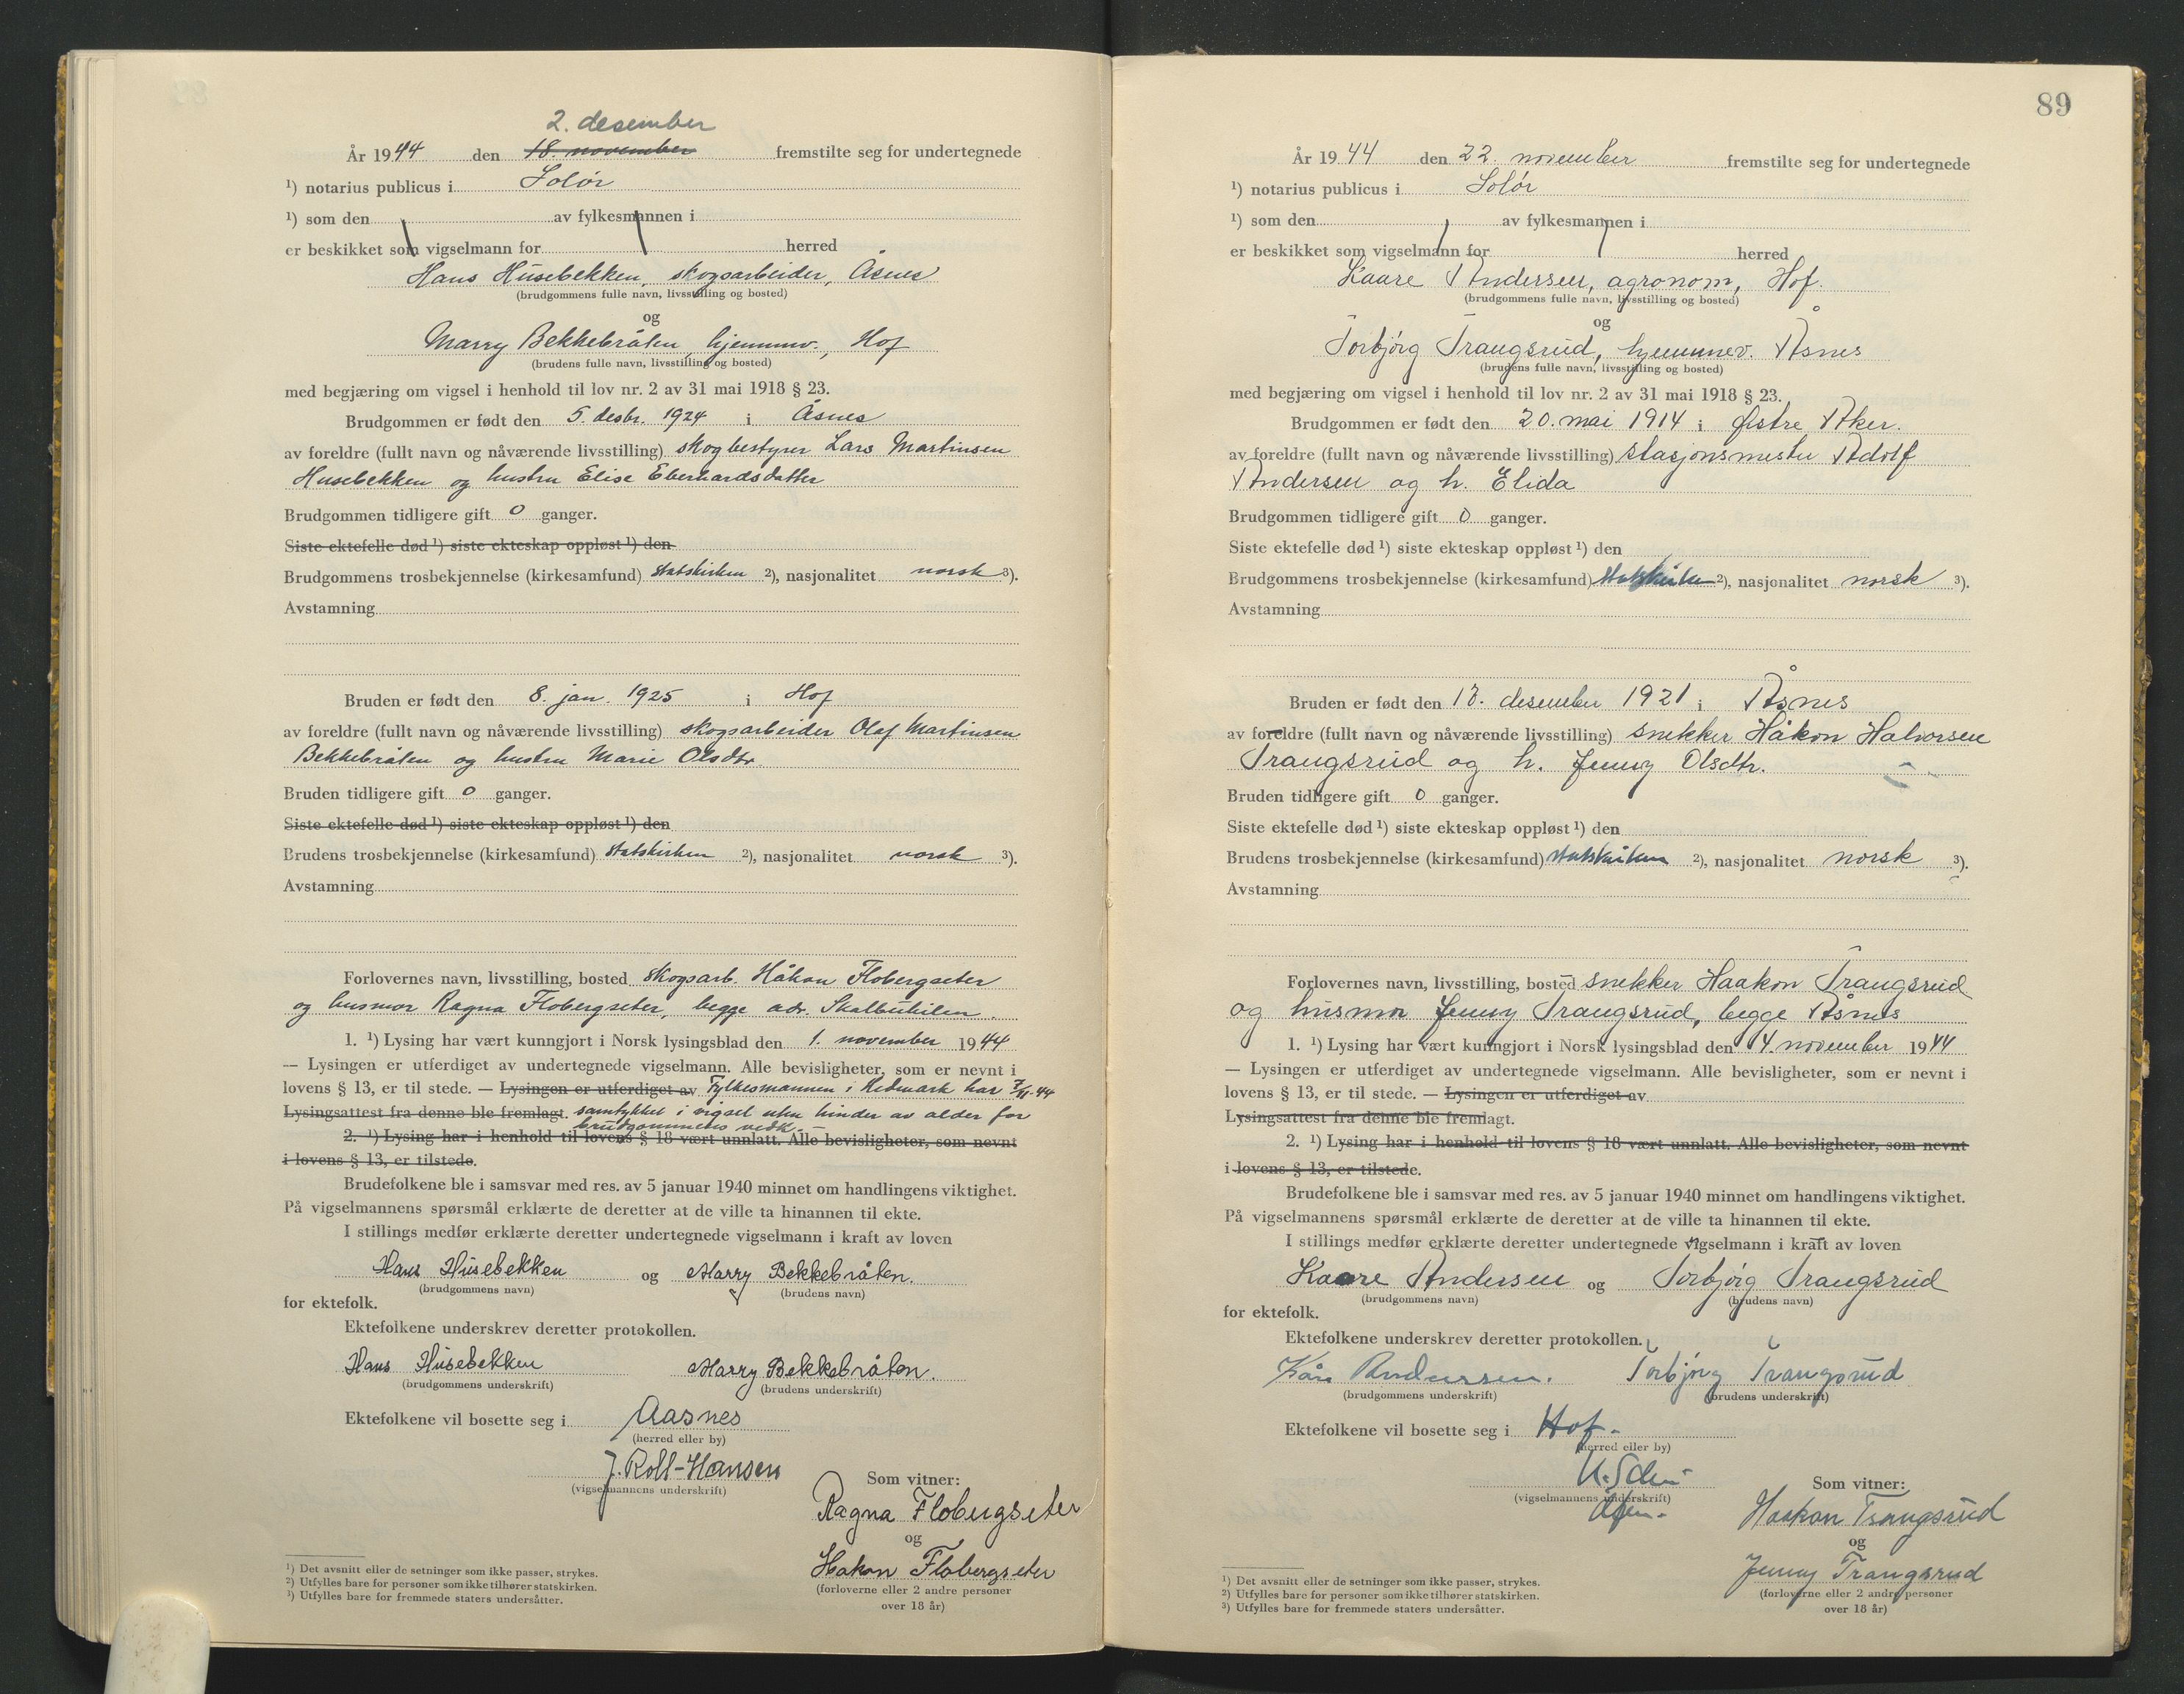 2. desember
År 1944 den 18. november fremstilte seg for undertegnede
¹) notarius publicus i Solør
¹) som den av fylkesmannen i
er beskikket som vigselmann for herred
Hans Husebekken, skogsarbeider, Åsnes
(brudgommens fulle navn, livsstilling og bosted)
og
Marry Bekkebråten, hjemmev., Hof
(brudens fulle navn, livsstilling og bosted)
med begjæring om vigsel i henhold til lov nr. 2 av 31 mai 1918 § 23.
Brudgommen er født den 5. desbr. 1924 i Åsnes
av foreldre (fullt navn og nåværende livsstilling) skogbestyrer Lars Martinsen
Husebekken og hustru Elise Eberhardsdatter
Brudgommen tidligere gift 0 ganger.
Siste ektefelle død ¹) siste ekteskap oppløst ¹) den
Brudgommens trosbekjennelse (kirkesamfund) statskirken ²), nasjonalitet norsk ³).
Avstamning
Bruden er født den 8. jan. 1925 i Hof
av foreldre (fullt navn og nåværende livsstilling) skogsarbeider Olaf Martinsen
Bekkebråten og hustru Marie Olsdtr.
Bruden tidligere gift 0 ganger.
Siste ektefelle død ¹) siste ekteskap oppløst ¹) den
Brudens trosbekjennelse (kirkesamfund) statskirken ²), nasjonalitet norsk ³).
Avstamning
Forlovernes navn, livsstilling, bosted skogsarb. Håkon Flobergseter
og husmor Ragna Flobergseter, begge adr. Skalbukilen.
1. ¹) Lysing har vært kunngjort i Norsk lysingsblad den 1. november 1944
— Lysingen er utferdiget av undertegnede vigselmann. Alle bevisligheter, som er nevnt i
lovens § 13, er til stede. — Lysingen er utferdiget av Fylkesmannen i Hedmark har 7/11-44
Lysingsattest fra denne ble fremlagt. samtykket i vigsel uten hinder av alder for
brudgommens vedk. —
2. ¹) Lysing har i henhold til lovens § 18 vært unnlatt. Alle bevisligheter, som nevnt
i lovens § 13, er tilstede.
Brudefolkene ble i samsvar med res. av 5 januar 1940 minnet om handlingens viktighet.
På vigselmannens spørsmål erklærte de deretter at de ville ta hinannen til ekte.
I stillings medfør erklærte deretter undertegnede vigselmann i kraft av loven
Hans Husebekken og Marry Bekkebråten.
(brudgommens navn) (brudens navn)
for ektefolk.
Ektefolkene underskrev deretter protokollen.
Hans Husebekken Marry Bekkebråten.
(brudgommens underskrift) (brudens underskrift)
Ektefolkene vil bosette seg i Aasnes
(herred eller by)
J. Roll-Hansen
(vigselmannens underskrift)
Som vitner:
Ragna Flobergseter
og
Hakon Flobergseter
(forloverne eller 2 andre personer
over 18 år)
¹) Det avsnitt eller de setninger som ikke passer, strykes.
²) Utfylles bare for personer som ikke tilhører statskirken.
³) Utfylles bare for fremmede staters undersåtter.
89
År 1944 den 22. november fremstilte seg for undertegnede
¹) notarius publicus i Solør
¹) som den av fylkesmannen i
er beskikket som vigselmann for herred
Kaare Andersen, agronom, Hof.
(brudgommens fulle navn, livsstilling og bosted)
og
Torbjørg Trangsrud, hjemmev. Åsnes
(brudens fulle navn, livsstilling og bosted)
med begjæring om vigsel i henhold til lov nr. 2 av 31 mai 1918 § 23.
Brudgommen er født den 20. mai 1914 i Østre Aker.
av foreldre (fullt navn og nåværende livsstilling) stasjonsmester Adolf
Andersen og h. Elida
Brudgommen tidligere gift 0 ganger.
Siste ektefelle død ¹) siste ekteskap oppløst ¹) den
Brudgommens trosbekjennelse (kirkesamfund) statskirken ²), nasjonalitet norsk ³).
Avstamning
Bruden er født den 18. desember 1921 i Åsnes
av foreldre (fullt navn og nåværende livsstilling) snekker Håkon Halvorsen
Trangsrud og h. Jenny Olsdtr.
Bruden tidligere gift 0 ganger.
Siste ektefelle død ¹) siste ekteskap oppløst ¹) den
Brudens trosbekjennelse (kirkesamfund) statskirken ²), nasjonalitet norsk ³).
Avstamning
Forlovernes navn, livsstilling, bosted snekker Haakon Trangsrud
og husmor Jenny Trangsrud, begge Åsnes
1. ¹) Lysing har vært kunngjort i Norsk lysingsblad den 4. november 1944
— Lysingen er utferdiget av undertegnede vigselmann. Alle bevisligheter, som er nevnt i
lovens § 13, er til stede. — Lysingen er utferdiget av
Lysingsattest fra denne ble fremlagt.
2. ¹) Lysing har i henhold til lovens § 18 vært unnlatt. Alle bevisligheter, som nevnt
i lovens § 13, er tilstede.
Brudefolkene ble i samsvar med res. av 5 januar 1940 minnet om handlingens viktighet.
På vigselmannens spørsmål erklærte de deretter at de ville ta hinannen til ekte.
I stillings medfør erklærte deretter undertegnede vigselmann i kraft av loven
Kaare Andersen og Torbjørg Trangsrud
(brudgommens navn) (brudens navn)
for ektefolk.
Ektefolkene underskrev deretter protokollen.
Kåre Andersen. Torbjørg Trangsrud
(brudgommens underskrift) (brudens underskrift)
Ektefolkene vil bosette seg i Hof.
(herred eller by)
(vigselmannens underskrift)
Som vitner:
Haakon Trangsrud
og
Jenny Trangsrud
(forloverne eller 2 andre personer
over 18 år)
¹) Det avsnitt eller de setninger som ikke passer, strykes.
²) Utfylles bare for personer som ikke tilhører statskirken.
³) Utfylles bare for fremmede staters undersåtter.